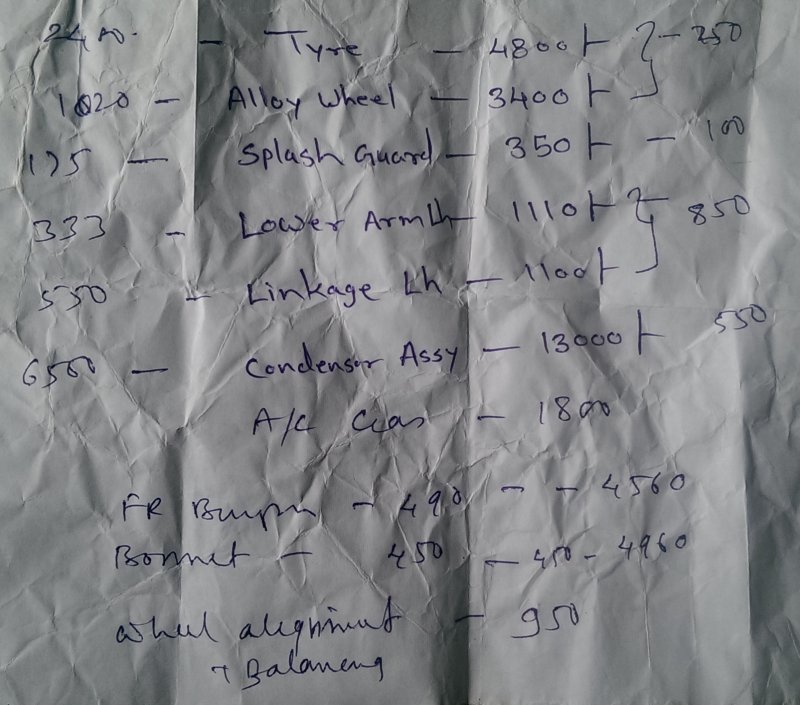 2400 - Tyre - 4800/- } - 250
1020 - Alloy Wheel - 3400/-
175 - Splash Guard - 350/- - 100
333 - Lower Arm Lh - 1110/- } 850
550 - Linkage Lh - 1100/-
6500 - Condensor Assy - 13000/- 550
A/C Gas - 1800
FR Bumper - 490 - - 4560
Bonnet - 450 - 450 - 4960
wheel alignment - 950
+ Balancing